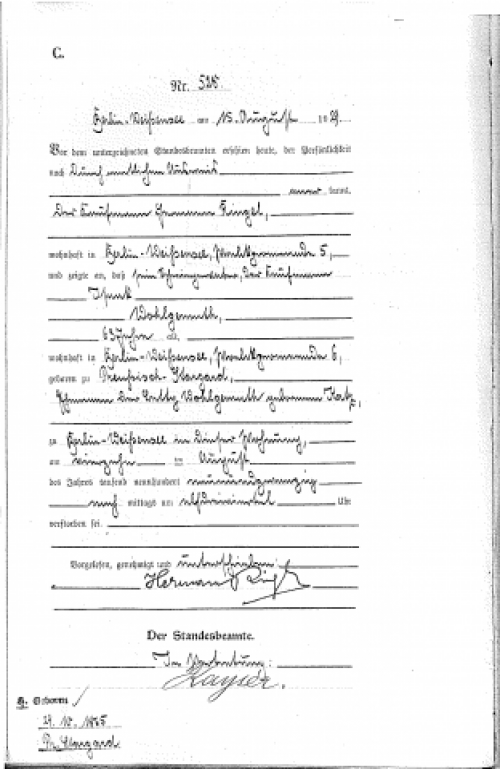 C.
Nr. 525
Berlin-Weißensee am 15. August 1929.
Vor dem unterzeichneten Standesbeamten erschien heute, der Persönlichkeit
nach durch amtlichen Ausweis
anerkannt,
Der Kaufmann Hermann
wohnhaft in Berlin-Weißensee, 5,
und zeigte an, daß sein Schwiegervater, der Kaufmann
Isaak
Wohlgemuth,
63 Jahre alt,
wohnhaft in Berlin-Weißensee, 6,
geboren zu Preußisch-Stargard,
Ehemann der Wohlgemuth geborenen Katz,
zu Berlin-Weißensee in dieser Wohnung,
am August
des Jahres tausend neunhundert neunundzwanzig
nach mittags um Uhr
verstorben sei.
Vorgelesen, genehmigt und unterschrieben
Hermann
Der Standesbeamte.
In Vertretung:
Kayser.
Geboren
Pr. Stargard